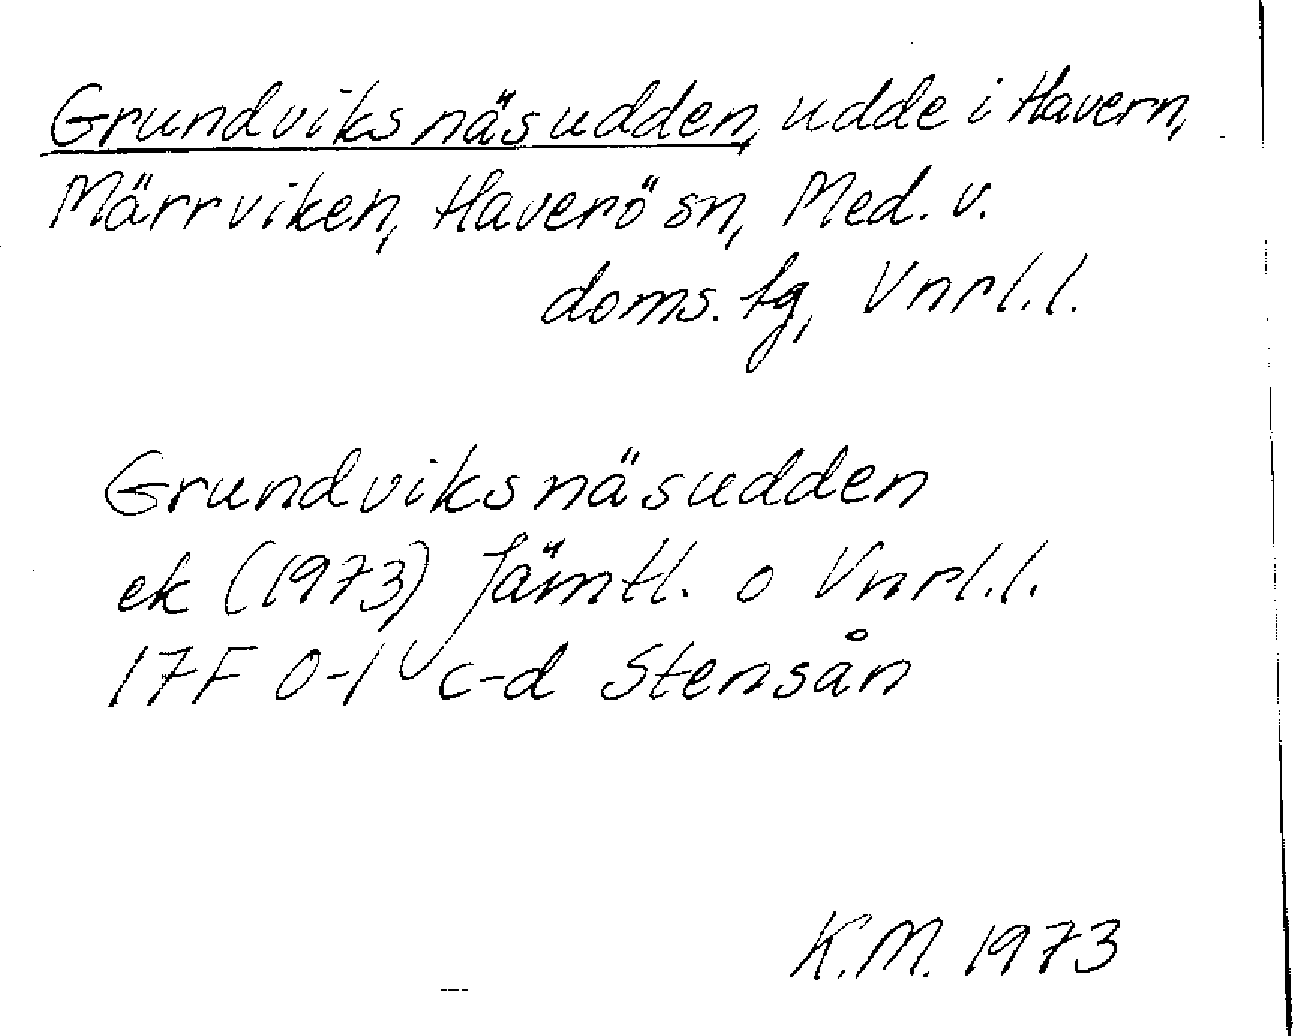 Grundviksnäsudden, udde i Havern,
Märrviken, Haverö sn, Med. v.
doms. tg, Vnrl.l.
Grundviksnäsudden
ek (1973) Jämtl. o Vnrl.l.
17F 0-1 c-d Stensån
K.M. 1973